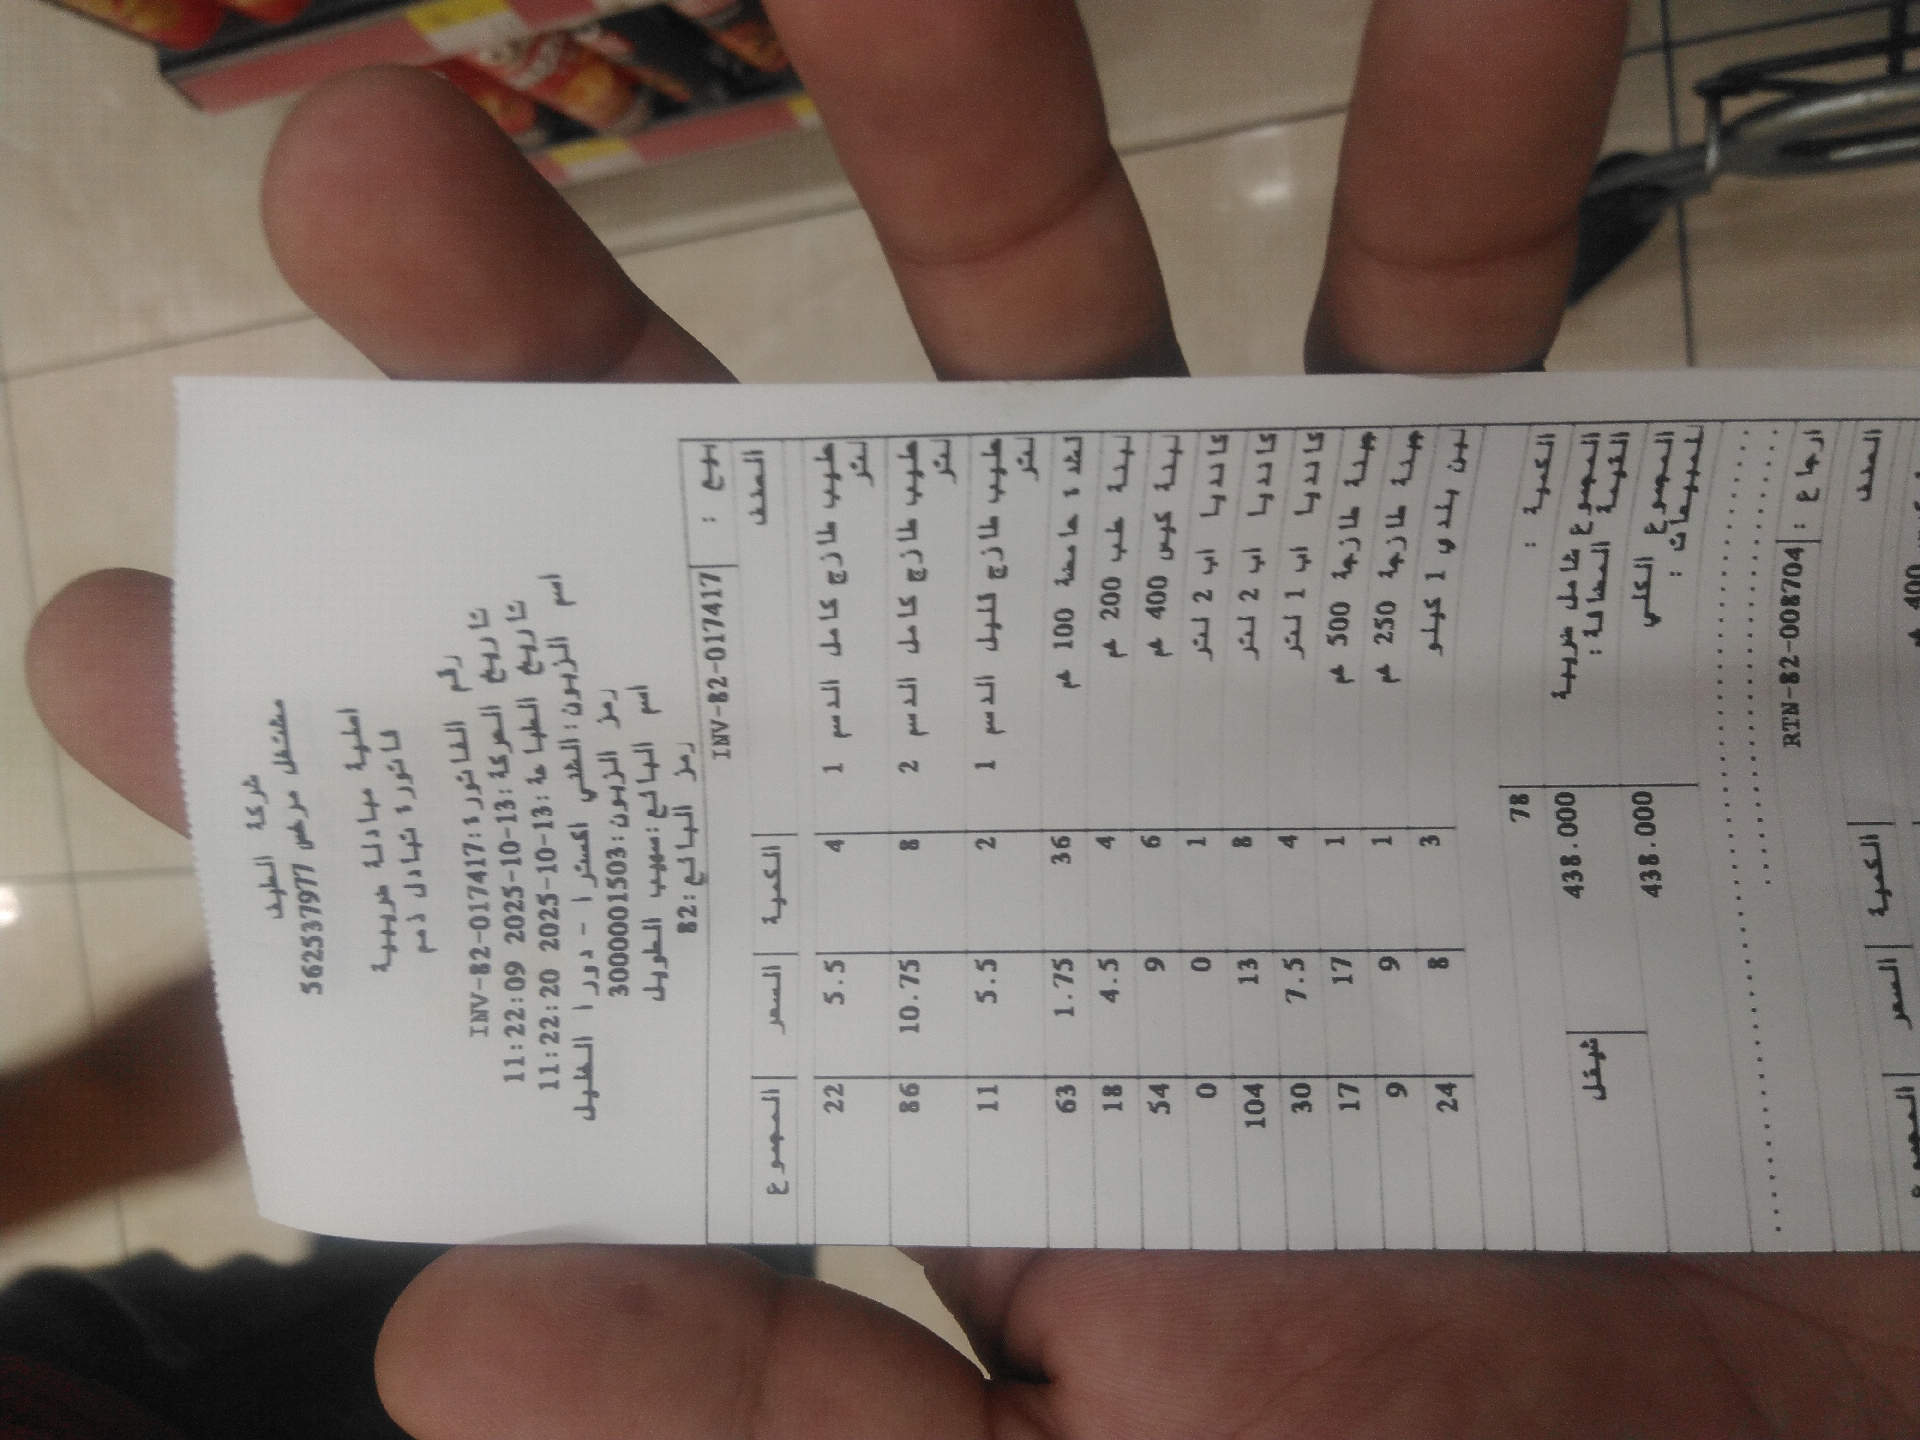 شركة الطيف
مشتغل مرخص 562537977
اصلية مبادلة ضريبية
فاتورة تبادل ذمم
رقم الفاتورة: INV-82-017417
تاريخ الحركة: 2025-10-13 11:22:09
تاريخ الطباعة: 2025-10-13 11:22:20
اسم الزبون: الشني اكسترا - دورا الخليل
رمز الزبون: 3000001503
اسم البائع: صهيب الطويل
رمز البائع: 82
بيع : INV-82-017417
الصنف الكمية السعر المجموع
حليب طازج كامل الدسم 1 لتر 4 5.5 22
حليب طازج كامل الدسم 2 لتر 8 10.75 86
حليب طازج قليل الدسم 1 لتر 2 5.5 11
قشدة حامضة 100 غم 36 1.75 63
لبنة علب 200 غم 4 4.5 18
لبنة كيس 400 غم 6 9 54
كالديا اب 2 لتر 1 0 0
كالديا اب 2 لتر 8 13 104
كالديا اب 1 لتر 4 7.5 30
جبنة طازجة 500 غم 1 17 17
جبنة طازجة 250 غم 1 9 9
لبن بلدي 1 كيلو 3 8 24
الكمية : 78
المجموع شامل ضريبة القيمة المضافة : 438.000 شيقل
المجموع الكلي للمبيعات : 438.000
ارجاع : RTN-82-008704
الصنف الكمية السعر المجموع
400